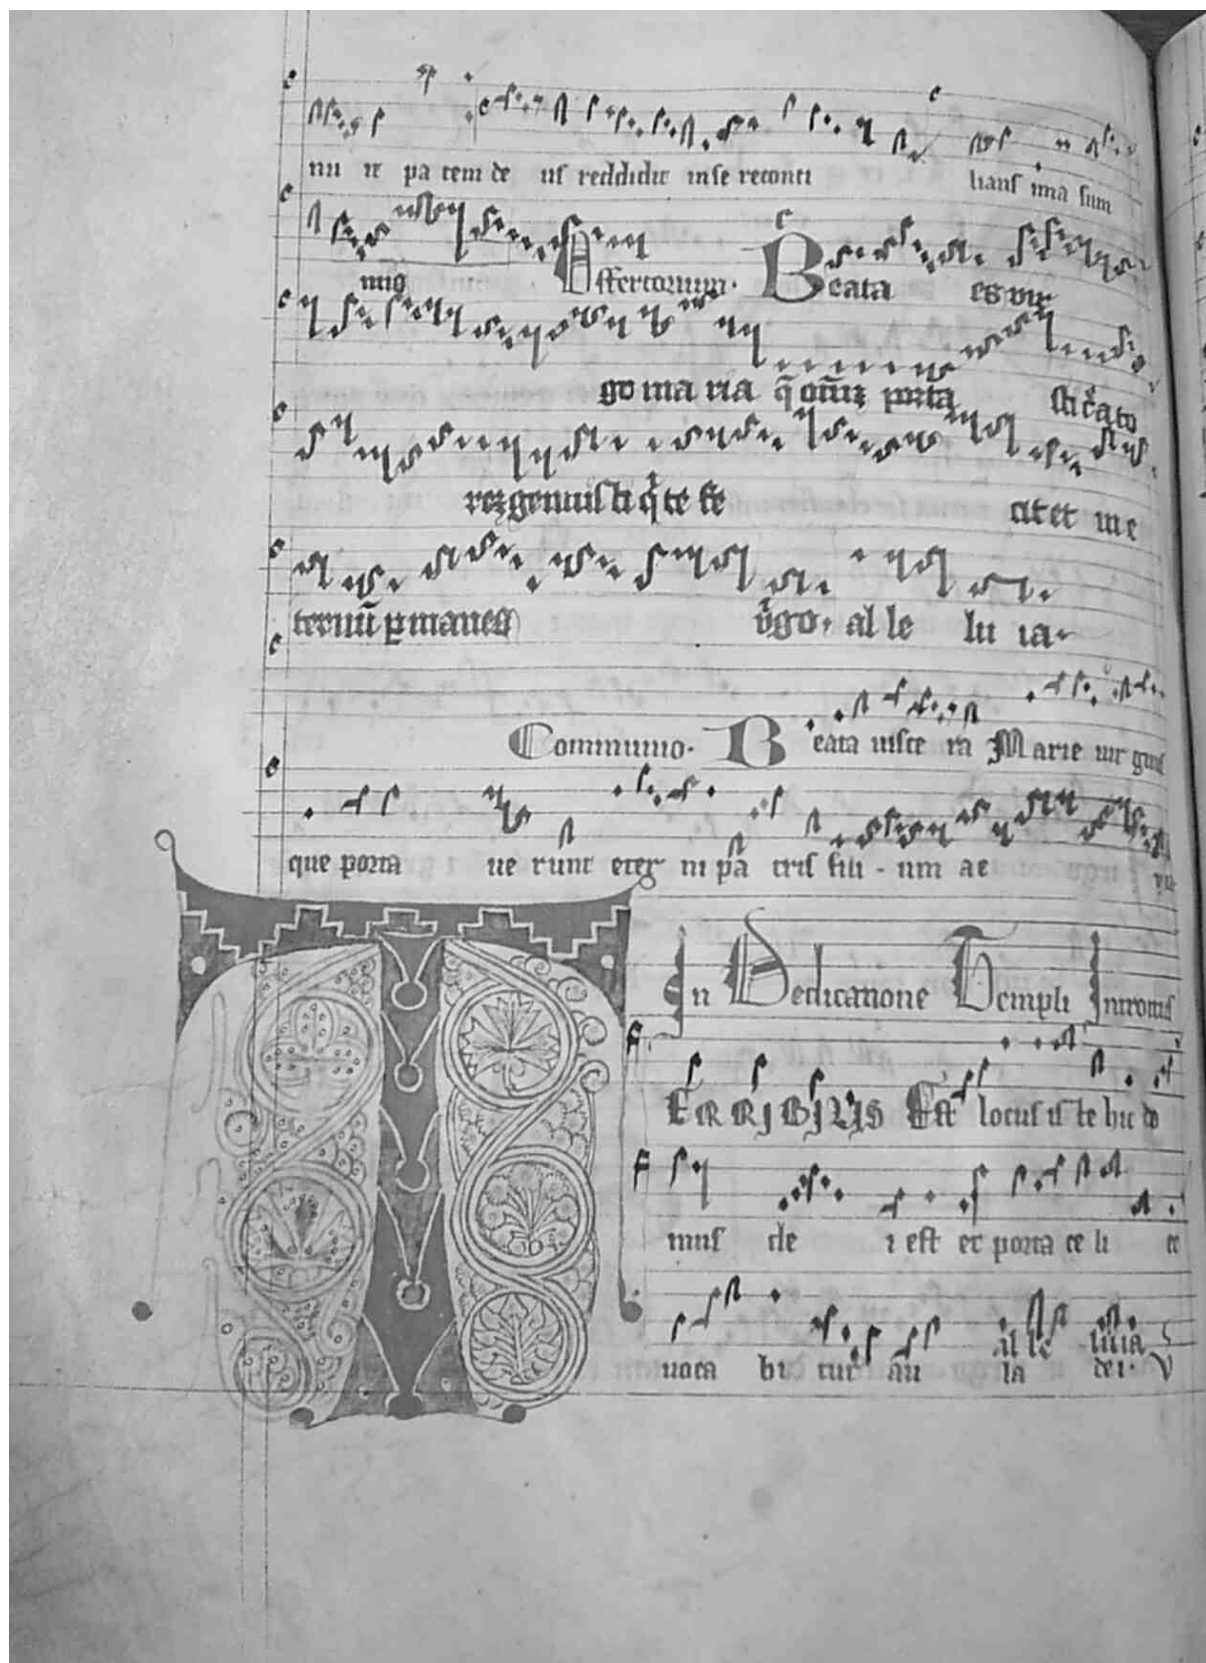 nu it pa cem de us reddidit in se reconci lians ima sum
mis Offertorium. Beata es vir
go ma ria q̄ om̄iū porta sti c̓ato
rez genuisti q̓ te fe cit et in e
ternū ꝑmanes v̓go. al le lu ia.
Communio. Beata visce ra Marie vir ginis
que porta ue runt eter ni pa tris fili . um ae
In Dedicatione Templi Introitus
TERRIBILIS Est locus is te hic do
mus de i est et porta ce li et
al le luia
uoca bi tur au la dei. V